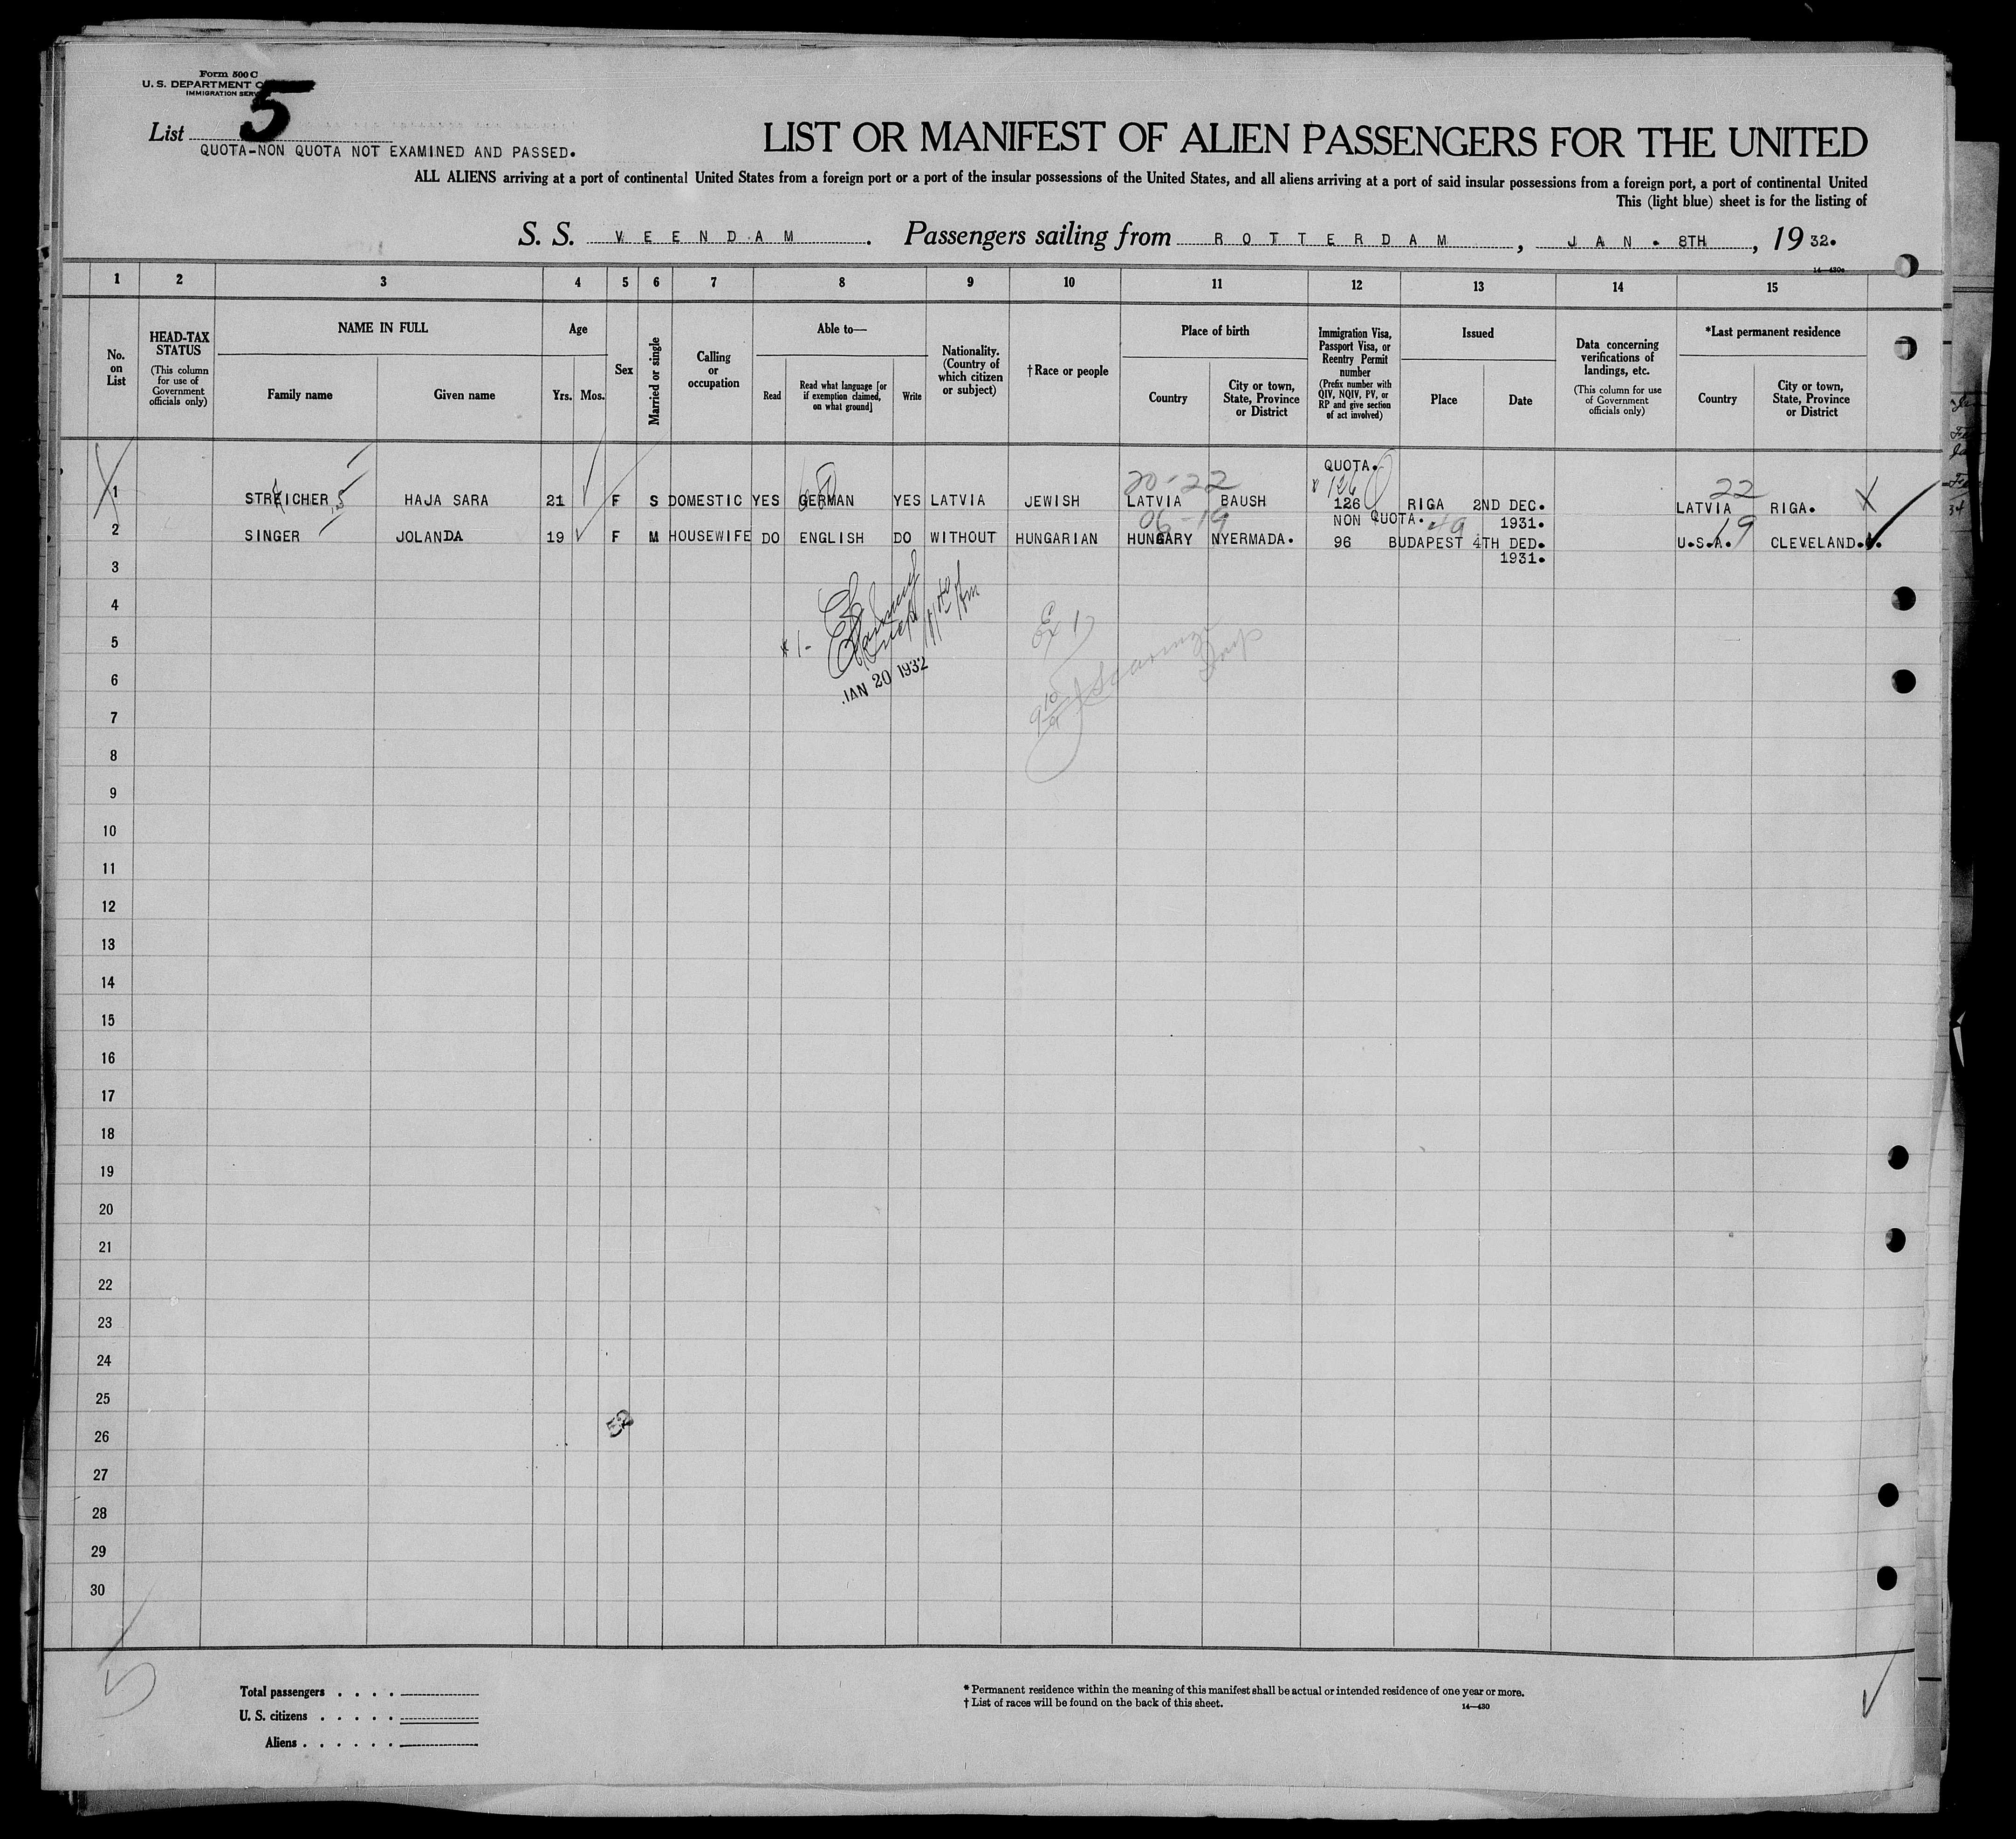 Form 500 C
U. S. DEPARTMENT O
IMMIGRATION SERV
List 5
QUOTA-NON QUOTA NOT EXAMINED AND PASSED.
LIST OR MANIFEST OF ALIEN PASSENGERS FOR THE UNITED
ALL ALIENS arriving at a port of continental United States from a foreign port or a port of the insular possessions of the United States, and all aliens arriving at a port of said insular possessions from a foreign port, a port of continental United
This (light blue) sheet is for the listing of
S. S. VEENDAM. Passengers sailing from ROTTERDAM, JAN. 8TH, 19 32.
14—430a
1 2 3 4 5 6 7 8 9 10 11 12 13 14 15
No. on List
HEAD-TAX STATUS (This column for use of Government officials only)
NAME IN FULL
Family name Given name
Age
Yrs. Mos.
Sex
Married or single
Calling or occupation
Able to—
Read Read what language [or if exemption claimed, on what ground] Write
Nationality. (Country of which citizen or subject)
†Race or people
Place of birth
Country City or town, State, Province or District
Immigration Visa, Passport Visa, or Reentry Permit number (Prefix number with QIV, NQIV, PV, or RP and give section of act involved)
Issued
Place Date
Data concerning verifications of landings, etc. (This column for use of Government officials only)
*Last permanent residence
Country City or town, State, Province or District
QUOTA.
20-22 126 22
1 STREICHER, S HAJA SARA 21 F S DOMESTIC YES GERMAN YES LATVIA JEWISH LATVIA BAUSH 126 RIGA 2ND DEC. LATVIA RIGA. X
06-19 NON QUOTA. 1931. 19
2 SINGER JOLANDA 19 F M HOUSEWIFE DO ENGLISH DO WITHOUT HUNGARIAN HUNGARY NYERMADA. 96 BUDAPEST 4TH DED. U.S.A. CLEVELAND.
1931.
3
4
5
6
JAN 20 1932
7
8
9
10
11
12
13
14
15
16
17
18
19
20
21
22
23
24
25
26
27
28
29
30
5
Total passengers . . . .
U. S. citizens . . . . .
Aliens . . . . . .
* Permanent residence within the meaning of this manifest shall be actual or intended residence of one year or more.
† List of races will be found on the back of this sheet.
14—430